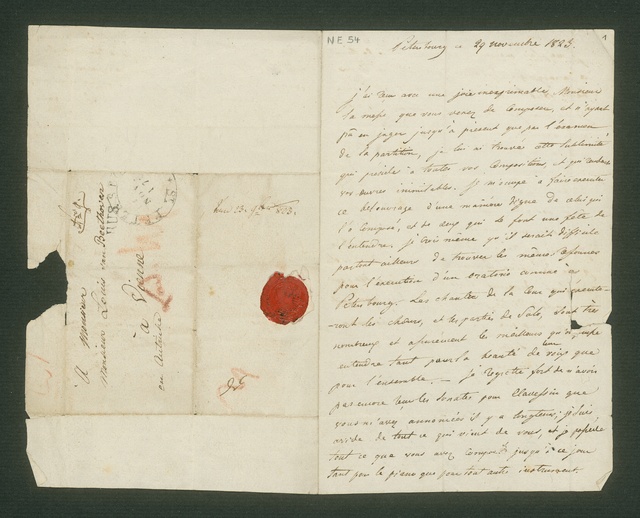 NE 54
1
Petersbourg ce 29 novembre 1823.
j'ai reçu avec une joie inexprimable, Monsieur
la messe que vous venez de composer, et n'ayant
pû en juger jusqu'à present que par l'examen
de la partition, j'y ai trouvé cette sublimité
qui preside à toutes vos compositions, et qui rendent
vos œuvres inimitables. Je m'occupe à faire executer
ce bel ouvrage d'une manière digne de celui qui
l'a composé, et de ceux qui se font une fête de
l'entendre. je crois même qu'il serait difficile
partout ailleurs de trouver les mêmes
pour l'execution d'un oratorio comme à
Petersbourg. Les chantres de la Cour qui
les chœurs, et les parties de Solo, sont très
nombreux et assurement les meilleurs qu'on puisse
entendre tant pour la beauté de leur voix que
pour l'ensemble. — je regrette fort de n'avoir
pas encore reçu les sonates pour Clavessin que
vous m'avez annoncées il y a longtems; je suis
avide de tout ce qui vient de vous, et je possède
tout ce que vous avez composé jusqu'à ce jour
tant pour le piano que pour tout autre instrument.
A Monsieur
Monsieur Louis van Beethoven
à Vienne
en Autriche